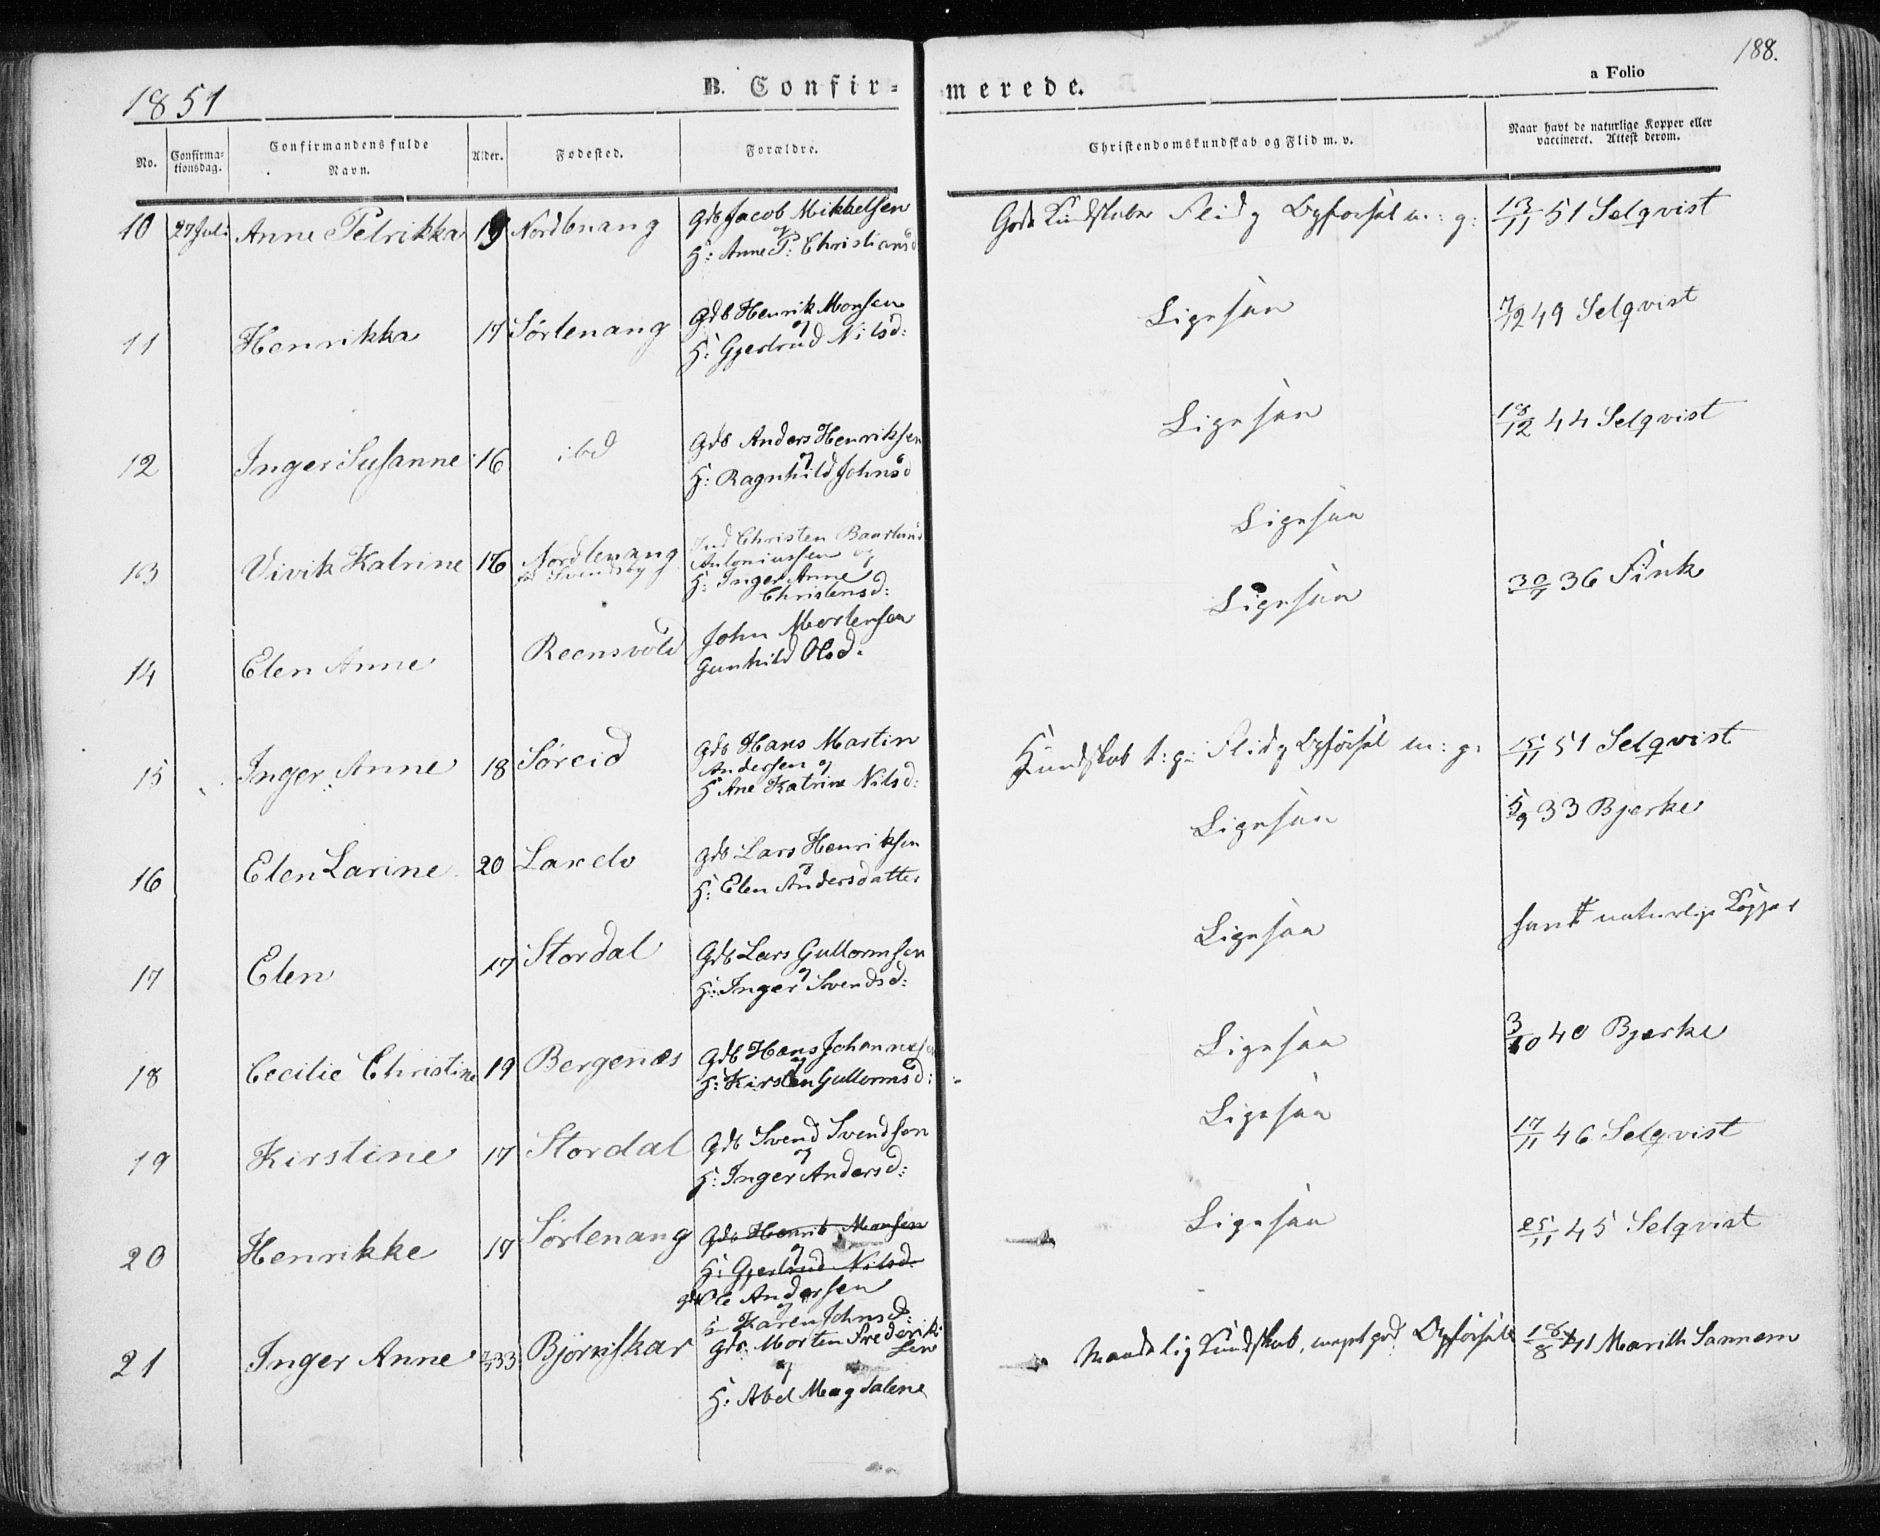 188.
1851
B. Confir-
merede.
a Folio
No.
Confirma-
tionsdag.
Confirmandens fulde
Navn.
Alder.
Fødested.
Forældre.
Christendomskundskab og Flid m. v.
Naar havt de naturlige Kopper eller
vaccineret. Attest derom.
10 27 Juli Anne Petrikka 19 Nordlenang
Gdb Jacob Mikkelsen
og
H: Anne P: Christiansd
Gode Kundskaber Flid og Opførsel m: g:
13/11 51 Selqvist
11 Henrikka 17 Sørlenang
Gdb Henrik Monsen
og
H: Gjertrud Nilsd:
Ligesaa
7/12 49 Selqvist
12 Inger Susanne 16 ibd
Gdb Anders Henriksen
og
H: Ragnhild Johnsd
Ligesaa
18/12 44 Selqvist
13 Vivik Katrine 16 Nordlenang
Svendsby
Ind Christen Baarlund
Antoniussen og
H: Inger Anne
Christensd:
Ligesaa
14 Elen Anne Reensvold
John Mortensen
Gunhild Olsd:
Ligesaa
30/7 36 Fink
15 Inger Anne 18 Søreid
Gdb Hans Martin
Andersen og
H Ane Katrine Nilsd:
Kundskab t: g: Flid og Opførsel m: g:
15/11 51 Selqvist
16 Elen Larine 20 Laxelv
Gdb Lars Henriksen
og
H: Elen Andersdatter
Ligesaa
5/9 33 Bjerke
17 Elen 17 Stordal
Gdb Lars Gullormsen
og
H: Inger Svendsd:
Ligesaa
havt naturlige Kopper
18 Cecilie Christine 19 Bergenæs
Gdb Hans Johannesen
og
H: Kirsten Gullormsd:
Ligesaa
3/10 40 Bjerke
19 Kirstine 17 Stordal
Gdb Svend Svendsen
og
H: Inger Andersd:
Ligesaa
17/11 46 Selqvist
20 Henrikke 17 Sørlenang
Gdb Henrik Monsen
og
H: Gjertrud Nilsd:
Gdb Ole Andersen
og
H Karen Johnsd:
Ligesaa
25/11 45 Selqvist
21 Inger Anne 33 Bjørnskar
Gdb: Morten Frederik-
sen
og
H: Abel Magdalene
Maadelig Kundskab, meget god Opførsel
18/8 41 Marith Sannem